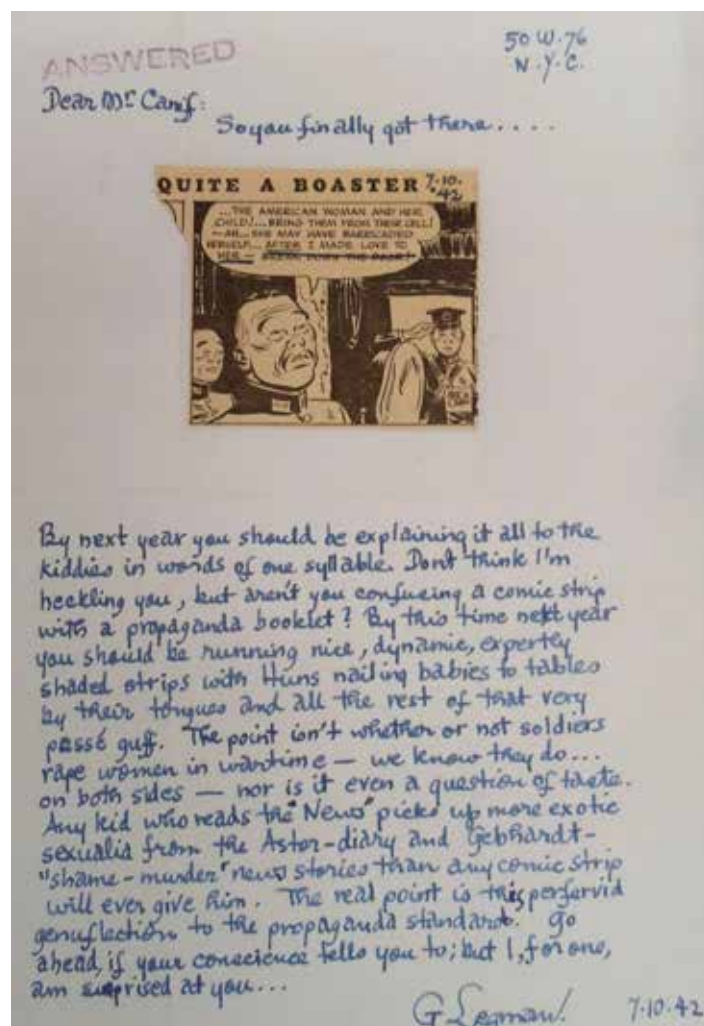 50 W. 76
N.Y.C.
ANSWERED
Dear Mr Canif:
So you finally got there....
QUITE A BOASTER 7·10·
42
...THE AMERICAN WOMAN AND HER
CHILD!...BRING THEM FROM THEIR CELL!
—AH...SHE MAY HAVE BARRICADED
HERSELF...AFTER I MADE LOVE TO
HER — BREAK DOWN THE DOOR!
By next year you should be explaining it all to the
kiddies in words of one syllable. Don't think I'm
heckling you, but aren't you confusing a comic strip
with a propaganda booklet? By this time next year
you should be running nice, dynamic, expertly
shaded strips with Huns nailing babies to tables
by their tongues and all the rest of that very
passé guff. The point isn't whether or not soldiers
rape women in wartime — we know they do...
on both sides — nor is it even a question of taste.
Any kid who reads the "News" picks up more exotic
sexualia from the Astor-diary and Gebhardt-
"shame-murder" news stories than any comic strip
will ever give him. The real point is this perfervid
genuflection to the propaganda standard. Go
ahead, if your conscience tells you to; but I, for one,
am surprised at you...
G. Legman! 7·10·42